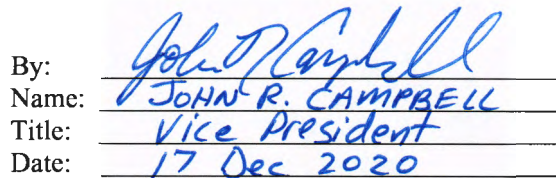 By: John R Campbell
Name: JOHN R. CAMPBELL
Title: Vice President
Date: 17 Dec 2020